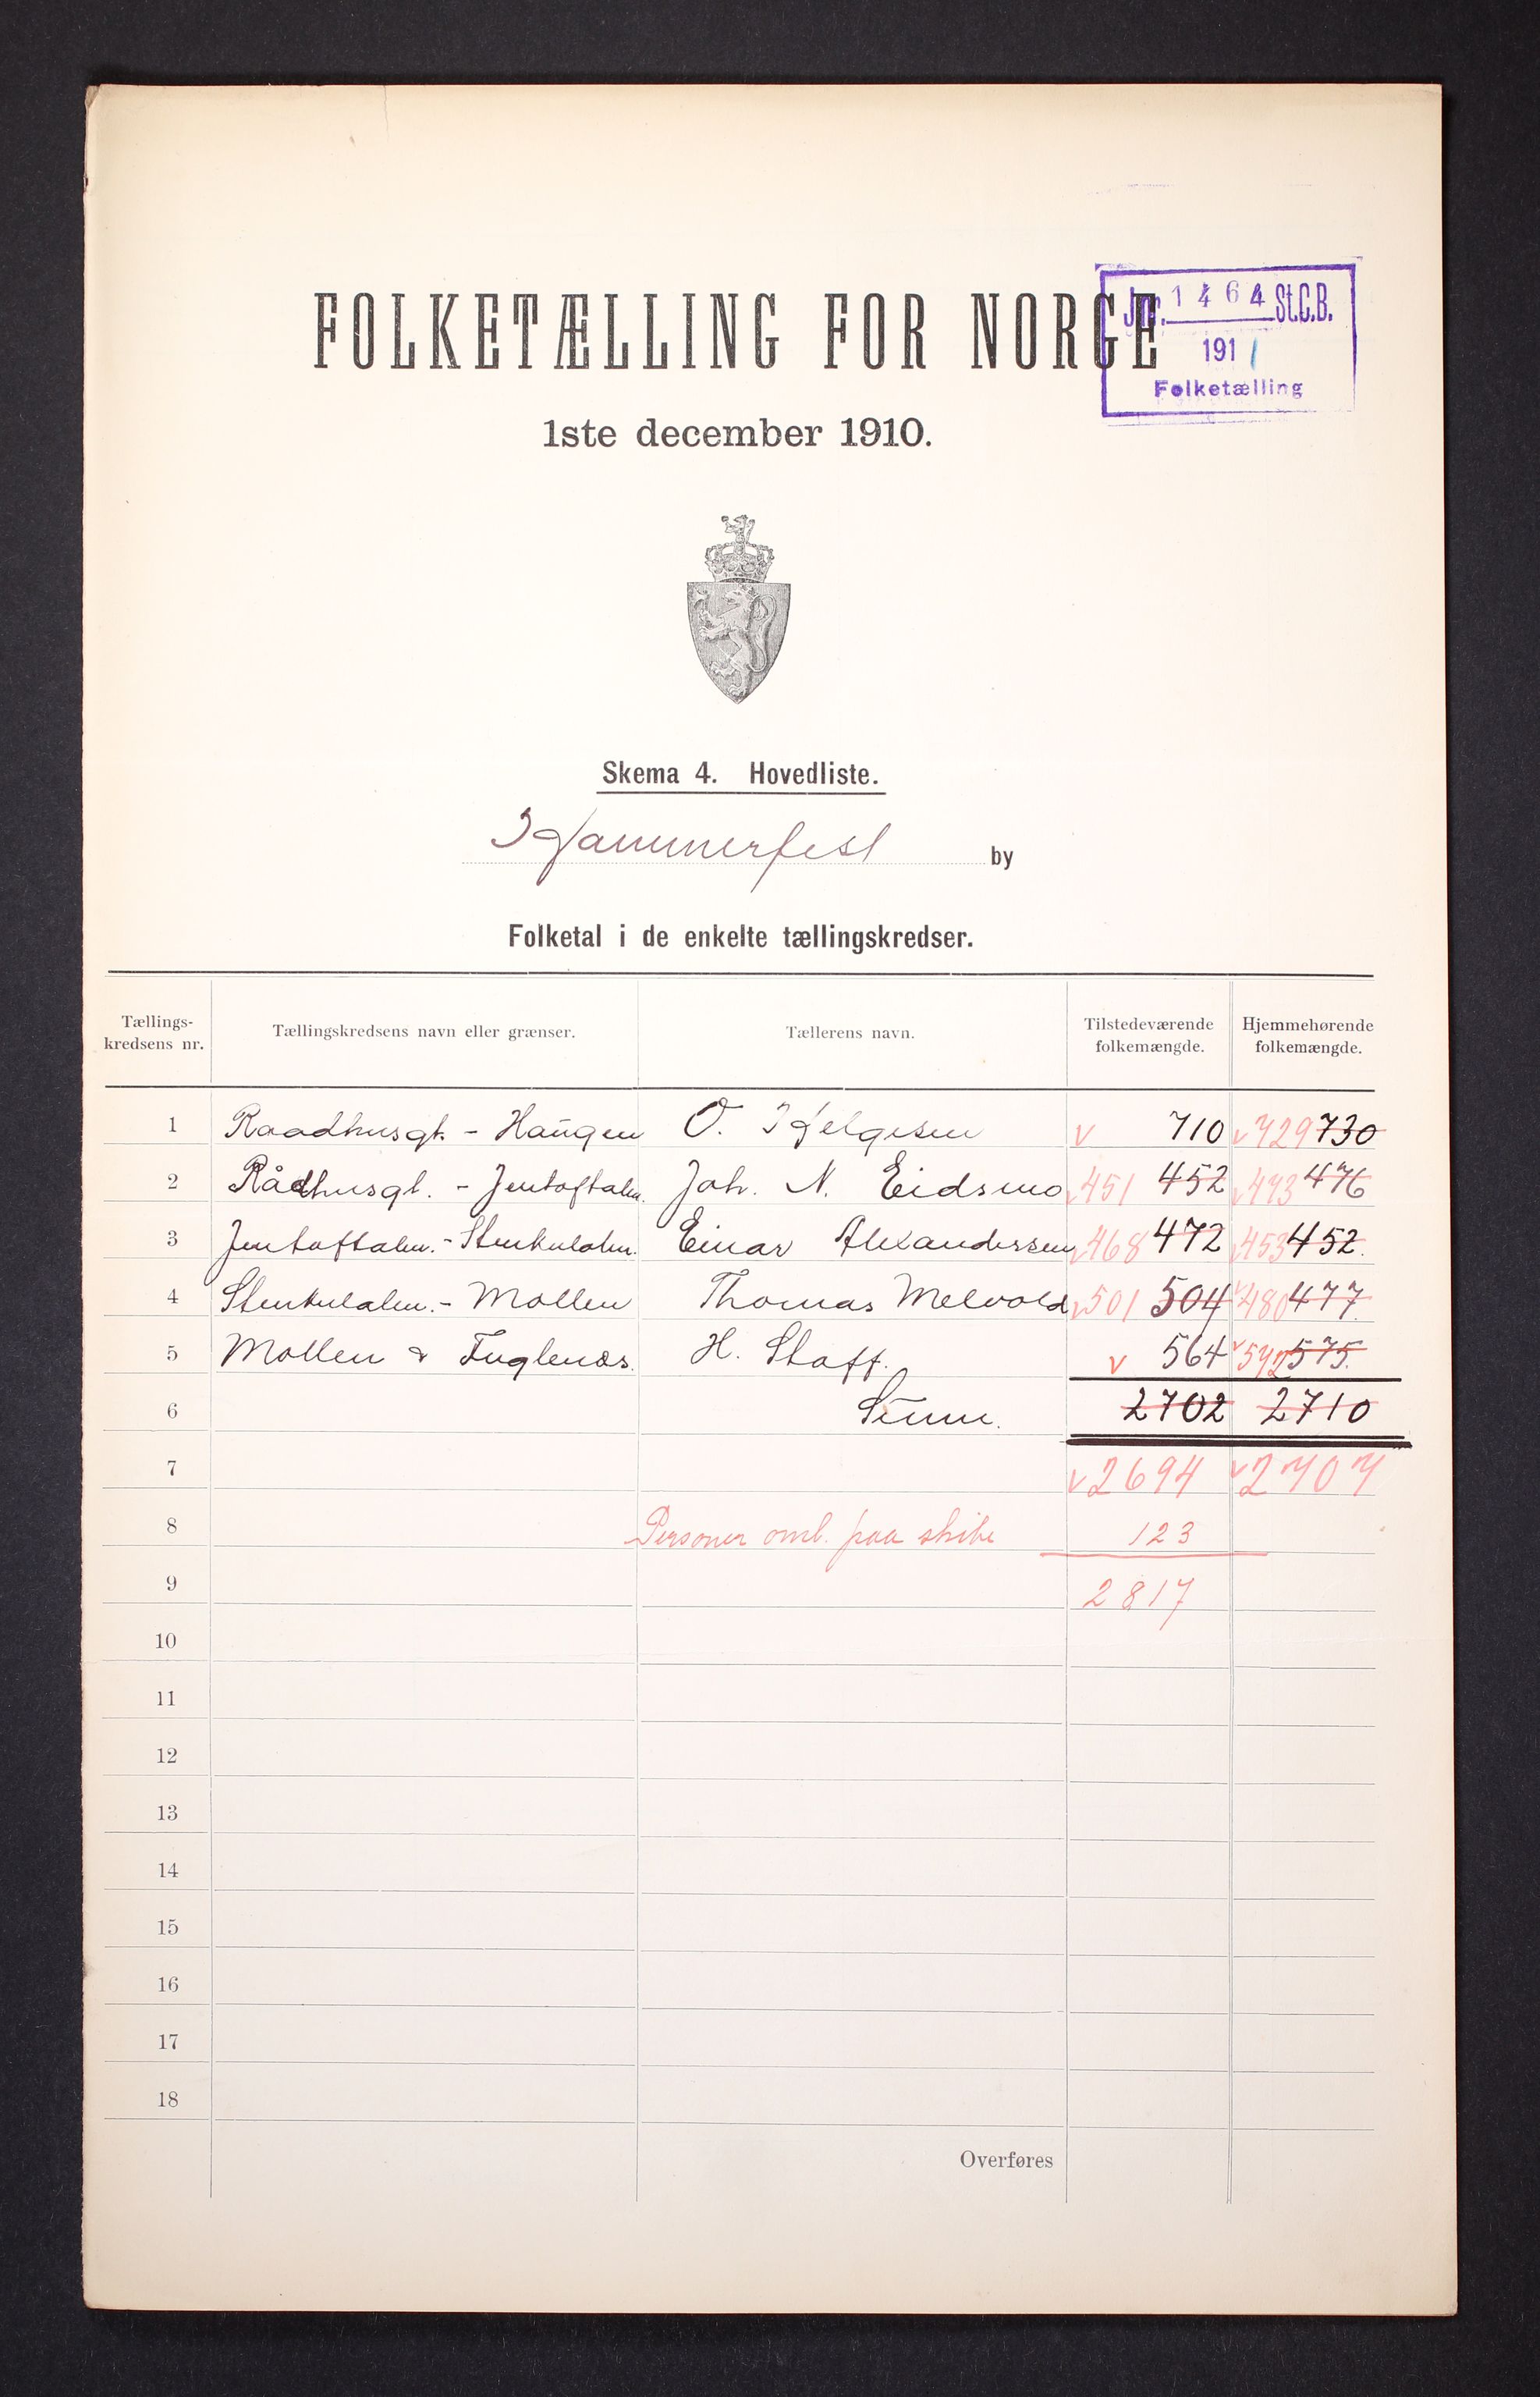 FOLKETÆLLING FOR NORGE
Jnr. 1464 St.C.B.
1911
Folketælling
1ste december 1910.
Skema 4. Hovedliste.
Hammerfest by
Folketal i de enkelte tællingskredser.
Tællings-kredsens nr. Tællingskredsens navn eller grænser. Tællerens navn. Tilstedeværende folkemængde. Hjemmehørende folkemængde.
1 Raadhusgt. - Haugen O. Helgesen v 710 v 729 730
2 Rådhusgt. - Jentoftalm. Joh. N. Eidsmo v 451 452 v 473 476
3 Jentoftalm. - Stenkulalm. Einar Alexandersen v 468 472 v 453 452.
4 Stenkulalm. - Mollen Thomas Melvold v 501 504 v 480 477.
5 Mollen & Fuglenæs. H. Staff. v 564 v 572 575.
6 Sum. 2702 2710
7 v 2694 v 2707
8 Personer omb. paa skibe 123
9 2817
10
11
12
13
14
15
16
17
18
Overføres